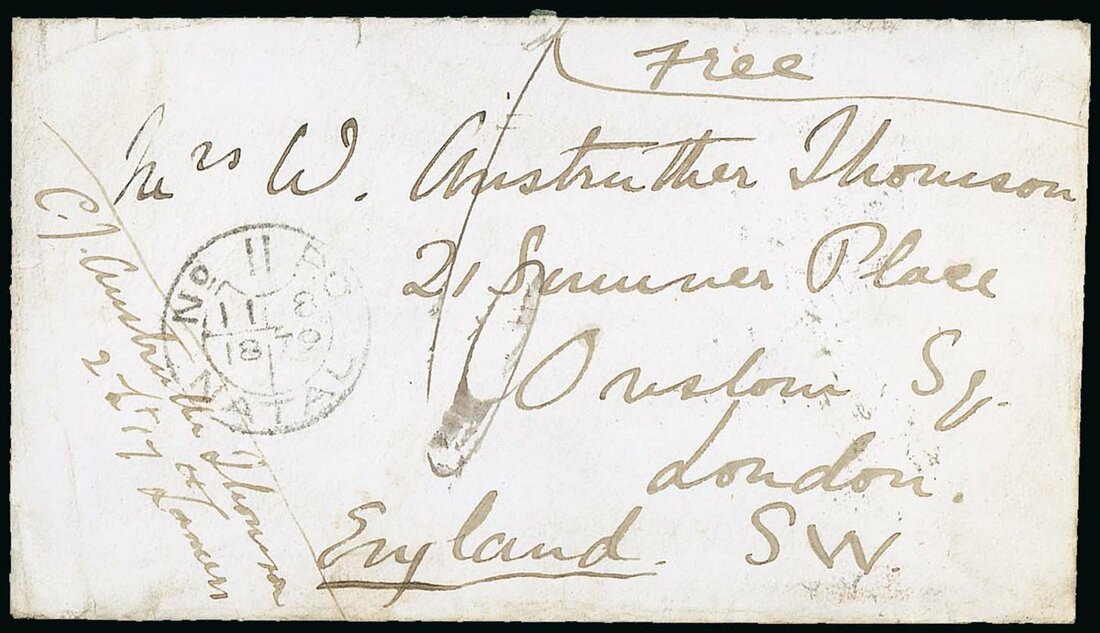 Free
Mrs W. Anstruther Thomson
21 Sumner Place
Onslow Sq.
London.
England. SW.
C.J. Anstruther Thomson
2 Lt 17th Lancers
No. 11 P.O.
11 8
1879
NATAL